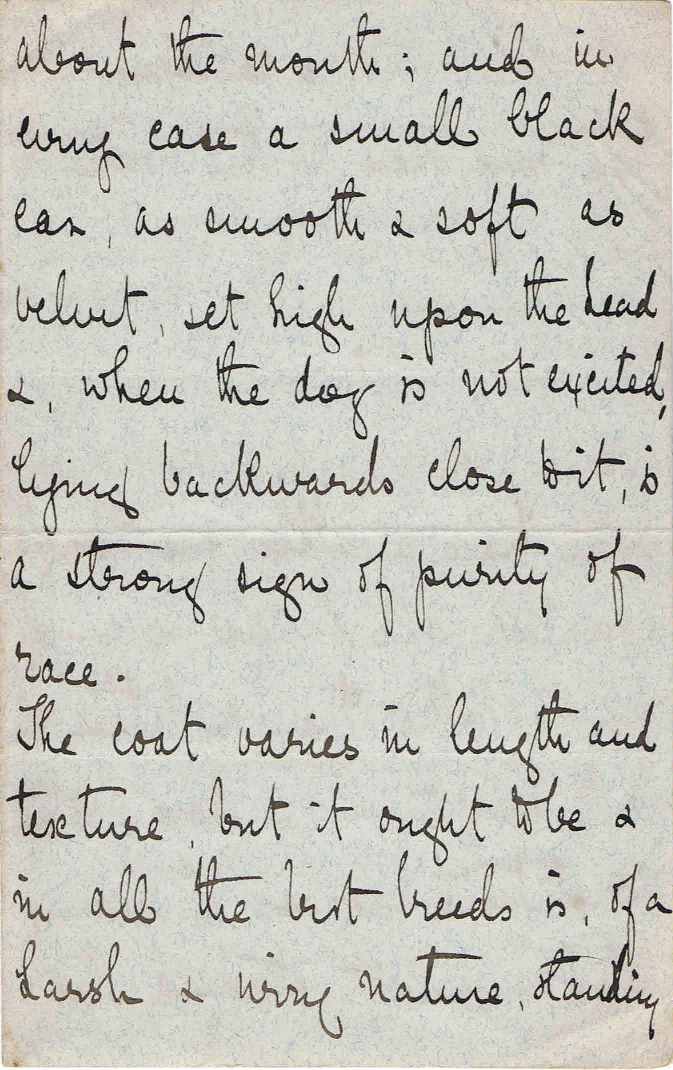 about the mouth; and in
every case a small black
ear, as smooth & soft as
velvet, set high upon the head
&, when the dog is not excited,
lying backwards close to it, is
a strong sign of purity of
race.
The coat varies in length and
texture, but it ought to be &
in all the best breeds is, of a
harsh & wiry nature, standing